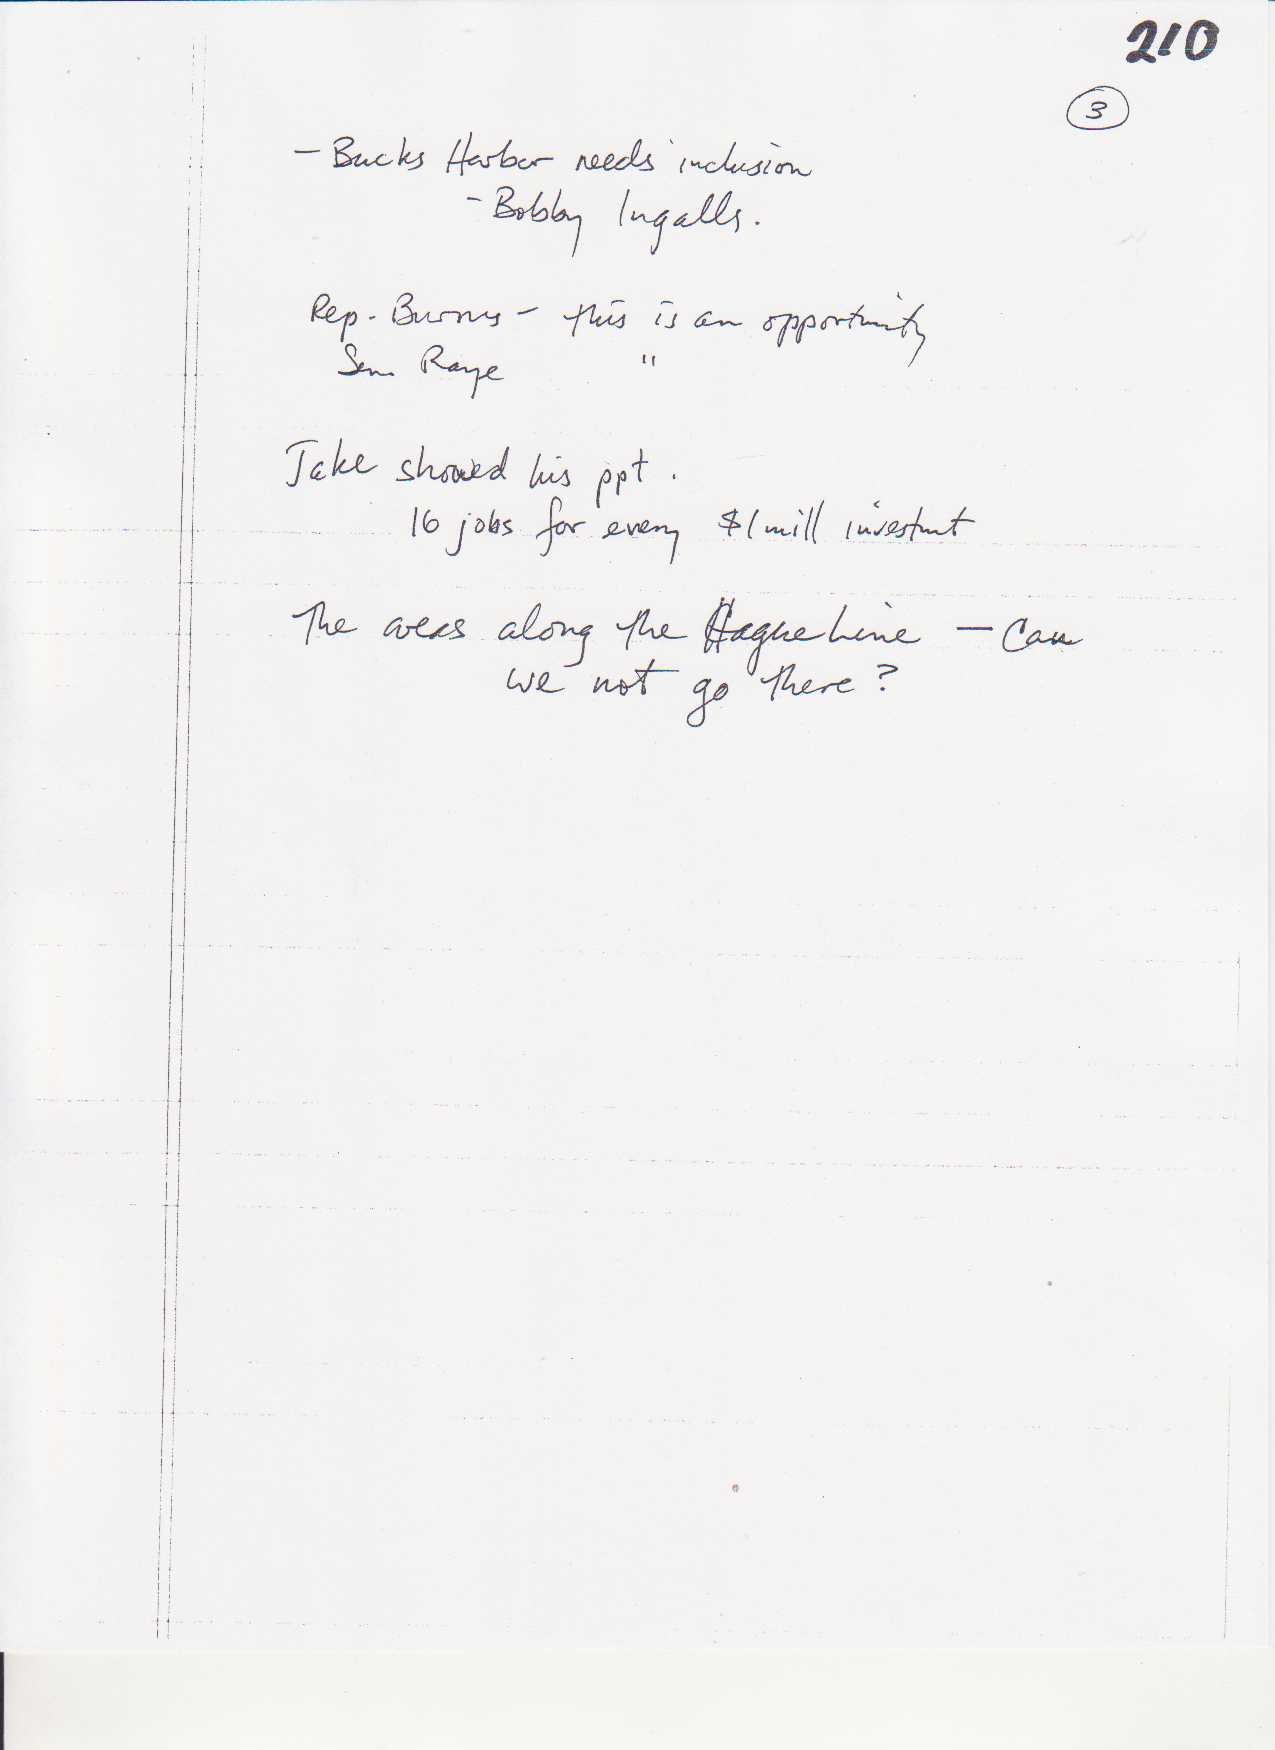 210
3
- Bucks Harbor needs inclusion
- Bobby Ingalls.
Rep. Burns - this is an opportunity
Sen. Raye "
Jake showed his ppt.
16 jobs for every $1 mill investmt
The areas along the Hague Line - Can
we not go there?